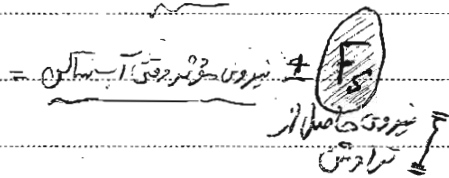 F_s + نیروی مؤثر وقتی آب ساکن =
نیروی حاصل از
تراوش